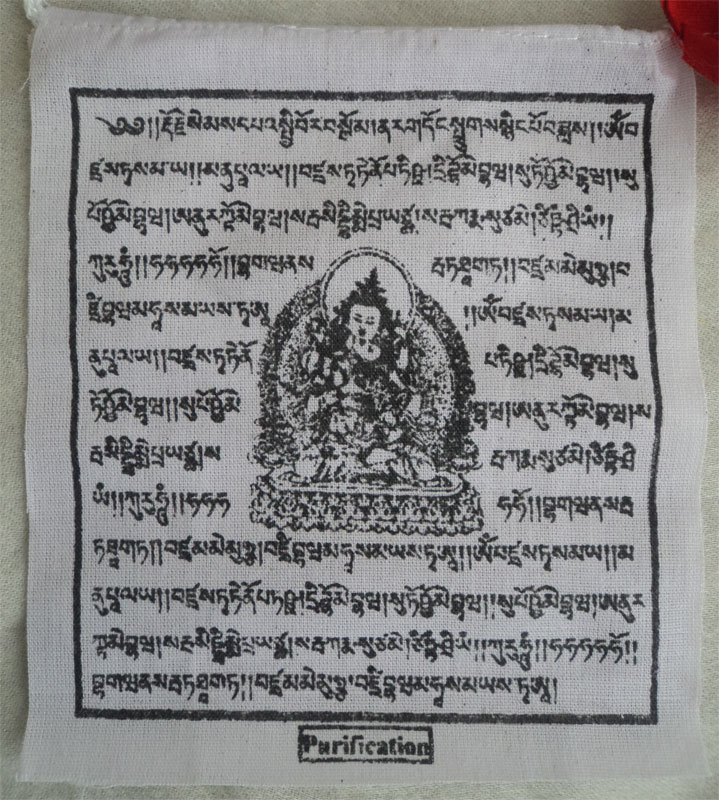 ༄༅།།རྡོརྗེསེམསདཔའསྤྱིབོརབསྒོམ།ནརགདོངསྤྲུགསསྙིངཔོབཟླས།།ཨོཾབ
ཛྲསཏྭསམཡ།།མནུཔཱལཡ།།བཛྲསཏྭཏེནོཔཏིཥྛ།དྲིཌྷོམེབྷཝ།སུཏོཥྱོམེབྷཝ།།སུ
པོཥྱོམེབྷཝ།ཨནུརཀྟོམེབྷཝ།སརྦསིདྡྷིམྨེཔྲཡཙྪ།སརྦཀརྨསུཙམེ།ཙིཏྟཾཤྲིཡཾ།།
ཀུརུཧཱུྃ།།ཧཧཧཧཧོ།།བྷགཝནས རྦཏཐཱགཏ།།བཛྲམམེམུཉྩ།བ
ཛྲིབྷཝམཧཱསམཡསཏྭཨཱ །།ཨོཾབཛྲསཏྭསམཡ།མ
ནུཔཱལཡ།།བཛྲསཏྭཏེནོ པཏིཥྛ།དྲིཌྷོམེབྷཝ།སུ
ཏོཥྱོམེབྷཝ།།སུཔོཥྱོམེ བྷཝ།ཨནུརཀྟོམེབྷཝ།ས
རྦསིདྡྷིམྨེཔྲཡཙྪ།ས རྦཀརྨསུཙམེ།ཙིཏྟཾཤྲི
ཡཾ།།ཀུརུཧཱུྃ།།ཧཧཧ ཧཧོ།།བྷགཝནསརྦ
ཏཐཱགཏ།།བཛྲམམེམུཉྩ།བཛྲིབྷཝམཧཱསམཡསཏྭཨཱ།།ཨོཾབཛྲསཏྭསམཡ།།མ
ནུཔཱལཡ།།བཛྲསཏྭཏེནོཔཏཥྛ།དྲིཌྷོམེབྷཝ།སུཏོཥྱོམེབྷཝ།།སུཔོཥྱོམེབྷཝ།ཨནུར
ཀྟམེབྷཝ།སརྦསིདྡྷིམྨེཔྲཡཙྪ།སརྦཀརྨསུཙམེ།ཙིཏྟཾཤྲིཡཾ།།ཀུརུཧཱུྃ།།ཧཧཧཧཧོ།།
བྷགཝནསརྦཏཐཱགཏ།།བཛྲམམེམུཉྩ།བཛྲིབྷཝམཧཱསམཡསཏྭཨཱ།
Purification